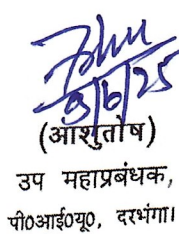 9/6/25
(आशुतोष)
उप महाप्रबंधक,
पी०आई०यू०, दरभंगा।